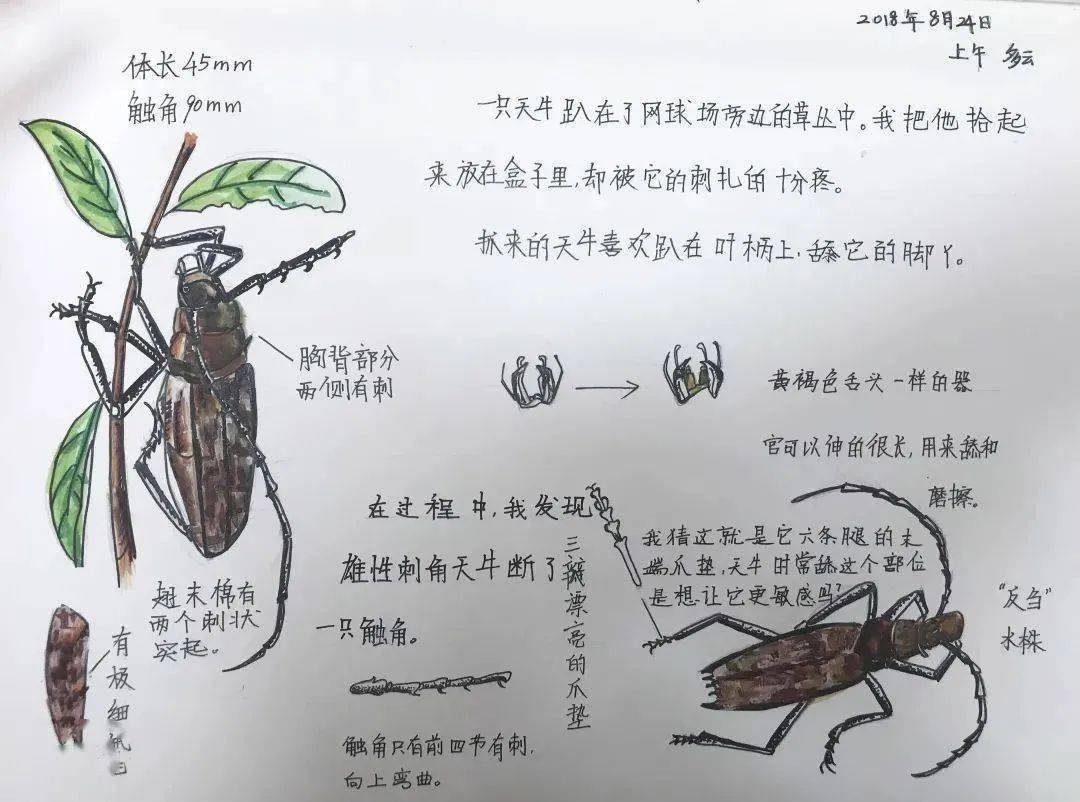 2018年8月24日
上午 多云
体长45mm
触角90mm
一只天牛趴在了网球场旁边的草丛中。我把他拾起
来放在盒子里,却被它的刺扎的十分疼。
抓来的天牛喜欢趴在叶柄上,舔它的脚丫。
胸背部分
两侧有刺
黄褐色舌头一样的器
官可以伸的很长,用来舔和
磨擦。
在过程中,我发现
雄性刺角天牛断了
一只触角。
三瓣漂亮的爪垫
我猜这就是它六条腿的末
端爪垫,天牛时常舔这个部位
是想让它更敏感吗?
“反刍”
水株
翅末棉有
两个刺状
突起。
有极细
触角只有前四节有刺,
向上弯曲。